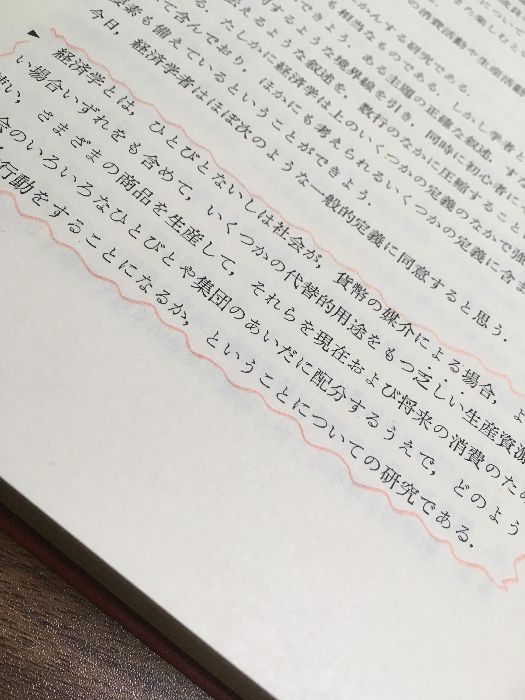 の消費活動や生産活動
かんする研究である.
も相当なものである. しかし学者
できよう. ある主題の正確な叙述,
するような境界線を引き, 同時に初心者に
伝えるような叙述を, 数行のなかに圧縮すること
る. たしかに経済学は上のいくつかの定義のなかで強
て含んでおり, ほかにも考えられるいくつかの定義に含ま
要素も備えているということができよう.
今日, 経済学者はほぼ次のような一般的定義に同意すると思う.
▶ 経済学とは, ひとびとないしは社会が, 貨幣の媒介による場合, よ
い場合いずれをも含めて, いくつかの代替的用途をもつ乏しい生産資源
い, さまざまの商品を生産して, それらを現在および将来の消費のため
会のいろいろなひとびとや集団のあいだに配分するうえで, どのよう
行動をすることになるか, ということについての研究である.